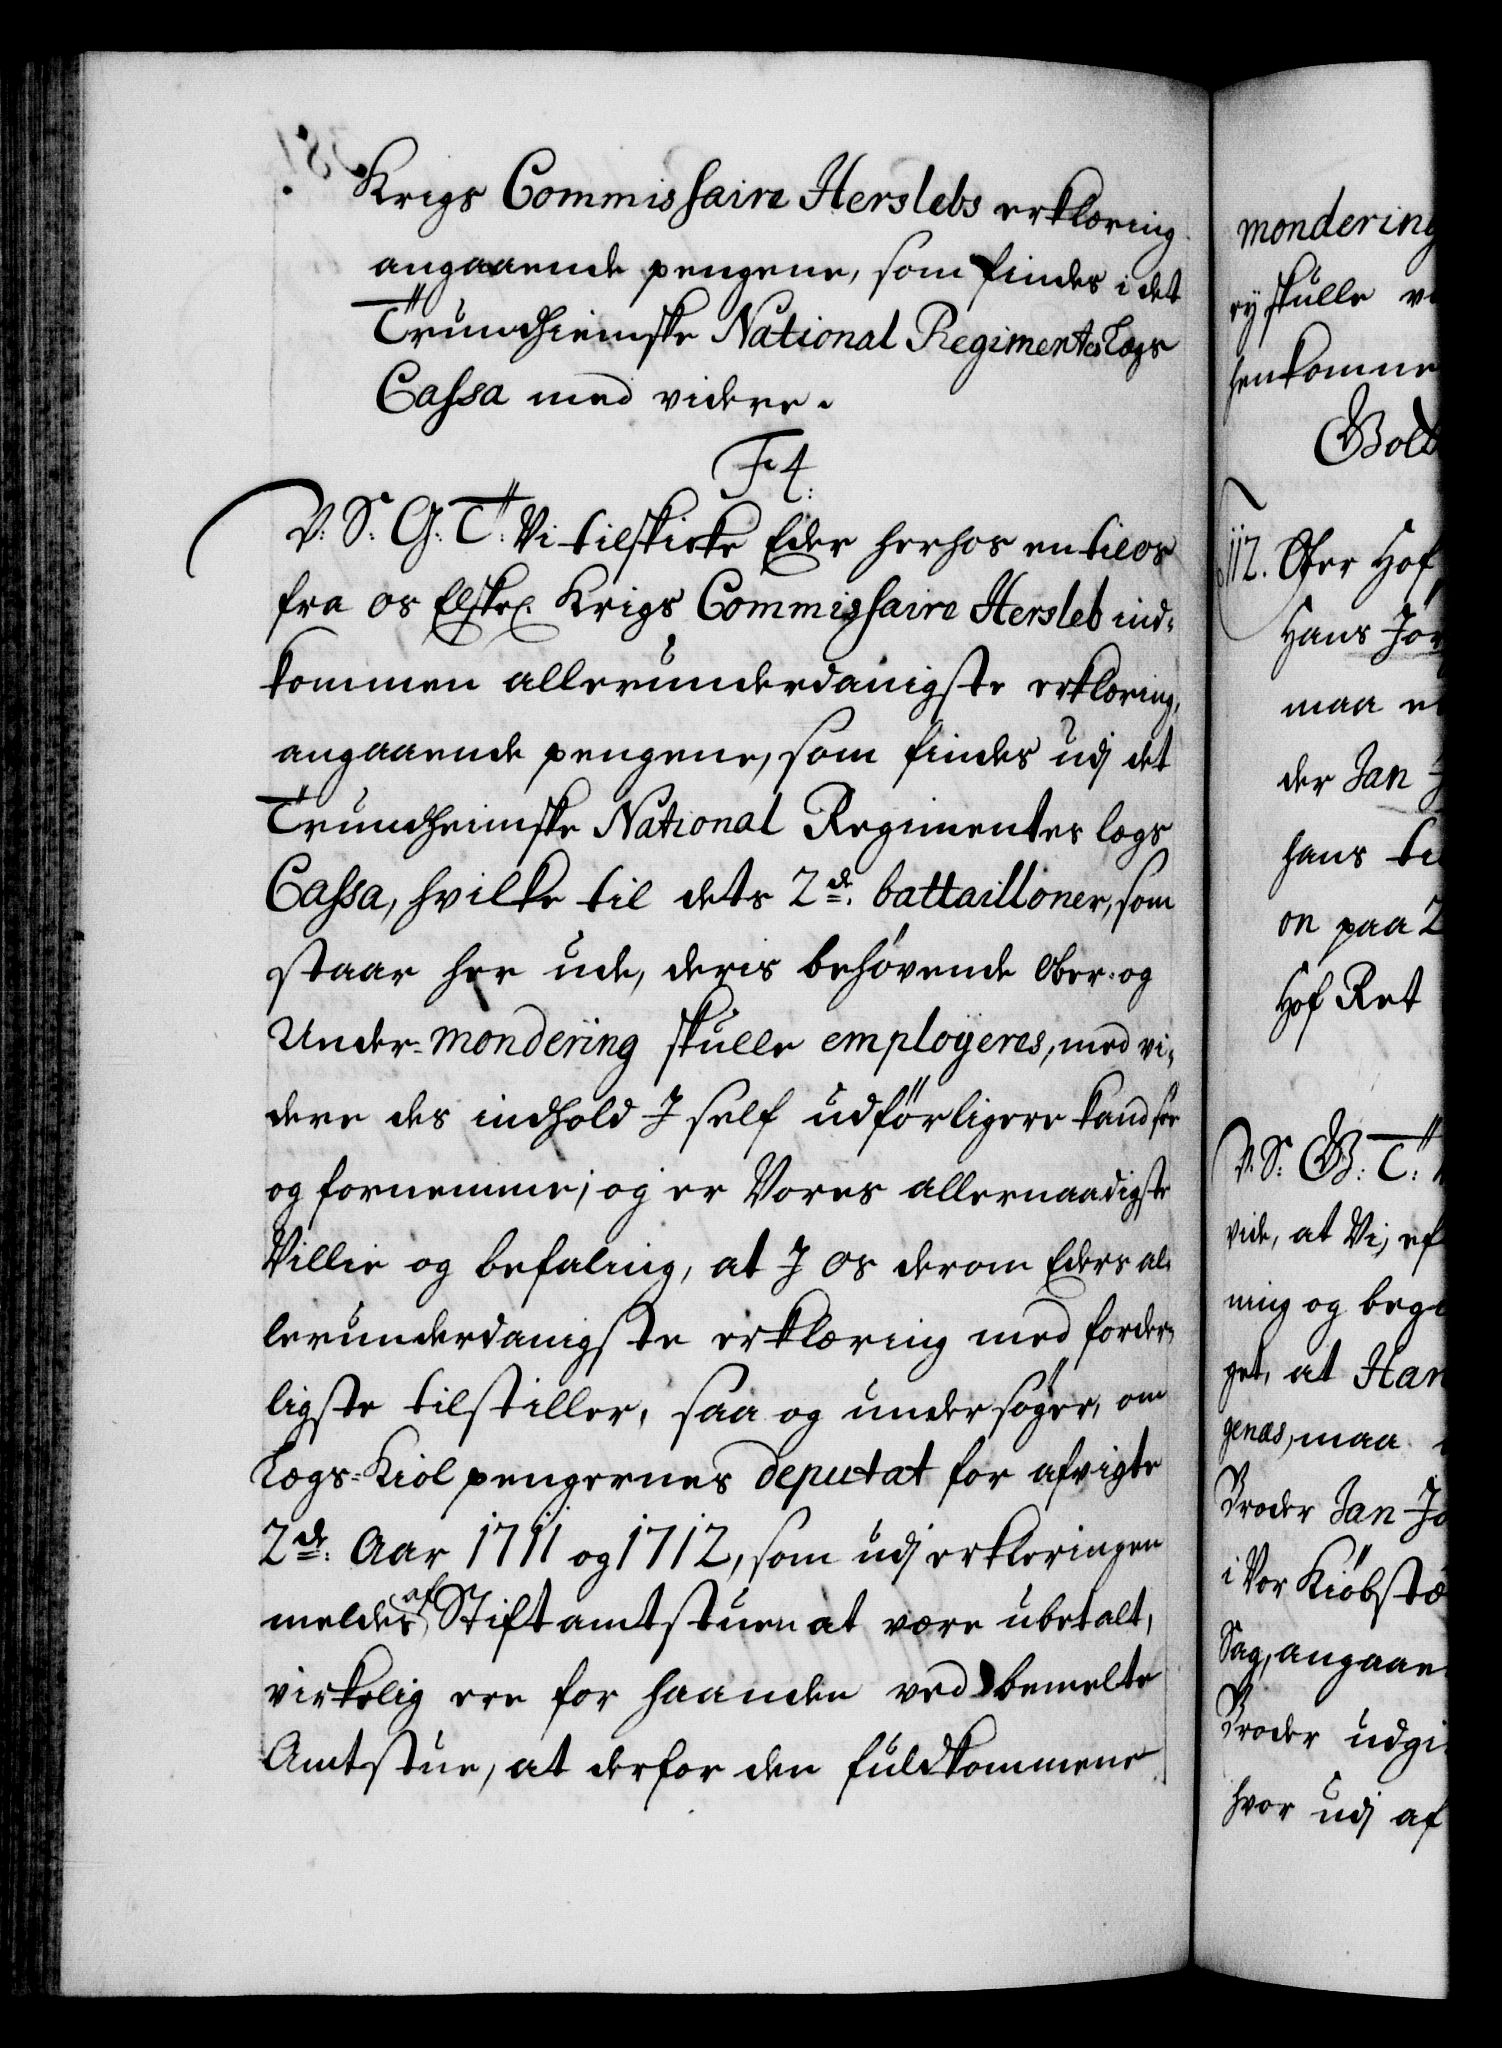 Krigs Commissaire Herslebs erklæring
angaaende pengene, som findes i det
Trundhiemske National Regimentes Lægs
Cassa med videre.
F4.
V. S. G. T. Vi tilskicke Eder herhos en til os
fra os Elskel. Krigs Commissaire Hersleb ind-
kommen allerunderdanigste erklæring,
angaaende pengene, som findes udj det
Trundheimske National Regimentes lægs
Cassa, hvilke til dets 2de battailloner, som
staar her ude, deris behøvende Ober- og
Under-mondering skulle employeres, med vi-
dere des indhold I self udførligere kand see
og fornemme; og er Vores allernaadigste
Villie og befaling, at I os derom Eders al-
lerunderdanigste erklæring med forder-
ligste tilstiller, saa og undersøger, om
Lægs-Kiol pengernes deputat for afvigte
2de Aar 1711 og 1712, som udj erkleringen
meldes af Stiftamtstuen at være ubetalt,
virkelig ere for haanden ved bemelte
Amtstue, at derfor den fuldkommene
mondering
ej skulle
henkomne
112. Ofver Hof
Hans
maa
der Jan
hans
on paa 2
Hof Ret
V. S. G. T.
vide, at Vi, ef
ning og beg
get, at Han
maa
Broder Jan
i Vor Kiøbstæ
Sag, angaae
Broder udgi
hvor udj af